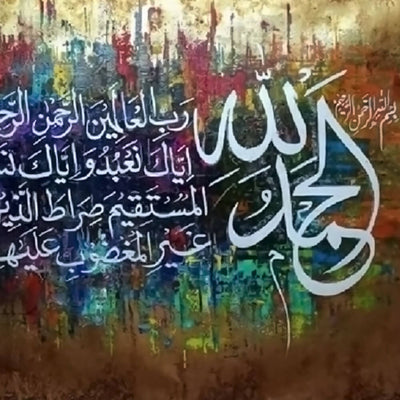 بسم الله الرحمن الرحيم
الحمد لله
رب العالمين الرحمن الرح
إياك نعبد وإياك نس
المستقيم صراط الذين
غير المغضوب عليه